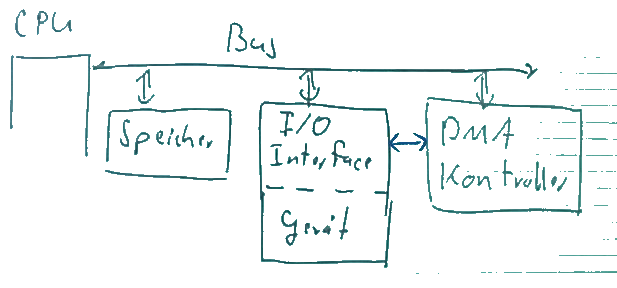 CPU
Bus
Speicher
I/O
Interface
Gerät
DMA
Kontroller